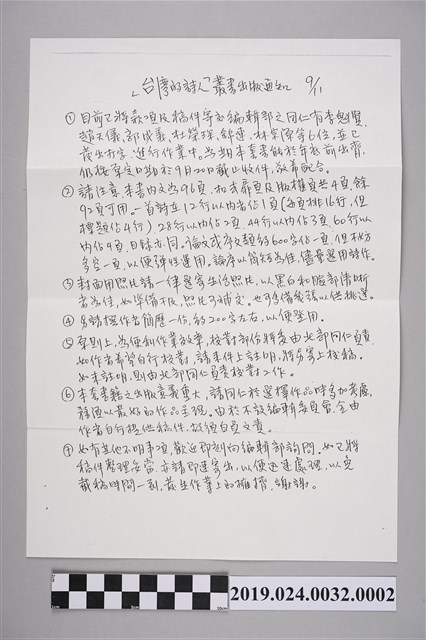 「台灣的詩人」叢書出版通知 9/11
① 目前已將款項及稿件寄至編輯部之同仁有李魁賢、
趙天儀、郭成義、杜榮琛、舒蓮、林宗源等6位,並已
發出打字,進行作業中。為期本叢書能於年底前出齊,
仍按原定日期於9月20日截止收件,敬希配合。
② 請注意,本書內文為96頁,扣去扉頁及版權頁共4頁,餘
92頁可用。一首詩在12行以內者佔1頁(每頁排16行,但
標題佔4行),28行以內佔2頁,44行以內佔3頁,60行以
內佔4頁,目錄亦同。論文或序文類約600字佔一頁,但不妨
多定一頁,以便彈性運用。論序以簡短為佳,儘量選用詩作。
③ 封面用照片請一律選寄生活照片,以黑白和臉部清晰
者為佳,如準備不及,照片可補交。也可多備幾張以供挑選。
④ 另請撰作者簡歷一份,約200字左右,以便登用。
⑤ 原則上,為便利作業效率,校對部份將委由北部同仁負責,
如作者希望自行校對,請來件上註明,將另寄上校稿。
如未註明,則由北部同仁負責校對工作。
⑥ 本套書籍之出版意義重大,請同仁於選擇作品時多加考慮,
務須以最好的作品呈現。由於不設編輯委員會,全由
作者自行提供稿件,故須自負文責。
⑦ 如有其他不明事項,歡迎即刻向編輯部詢問。如已將
稿件整理妥當,亦請即速寄出,以便迅速處理,以免
截稿時間一到,發生作業上的擁擠,謝謝。
2019.024.0032.0002